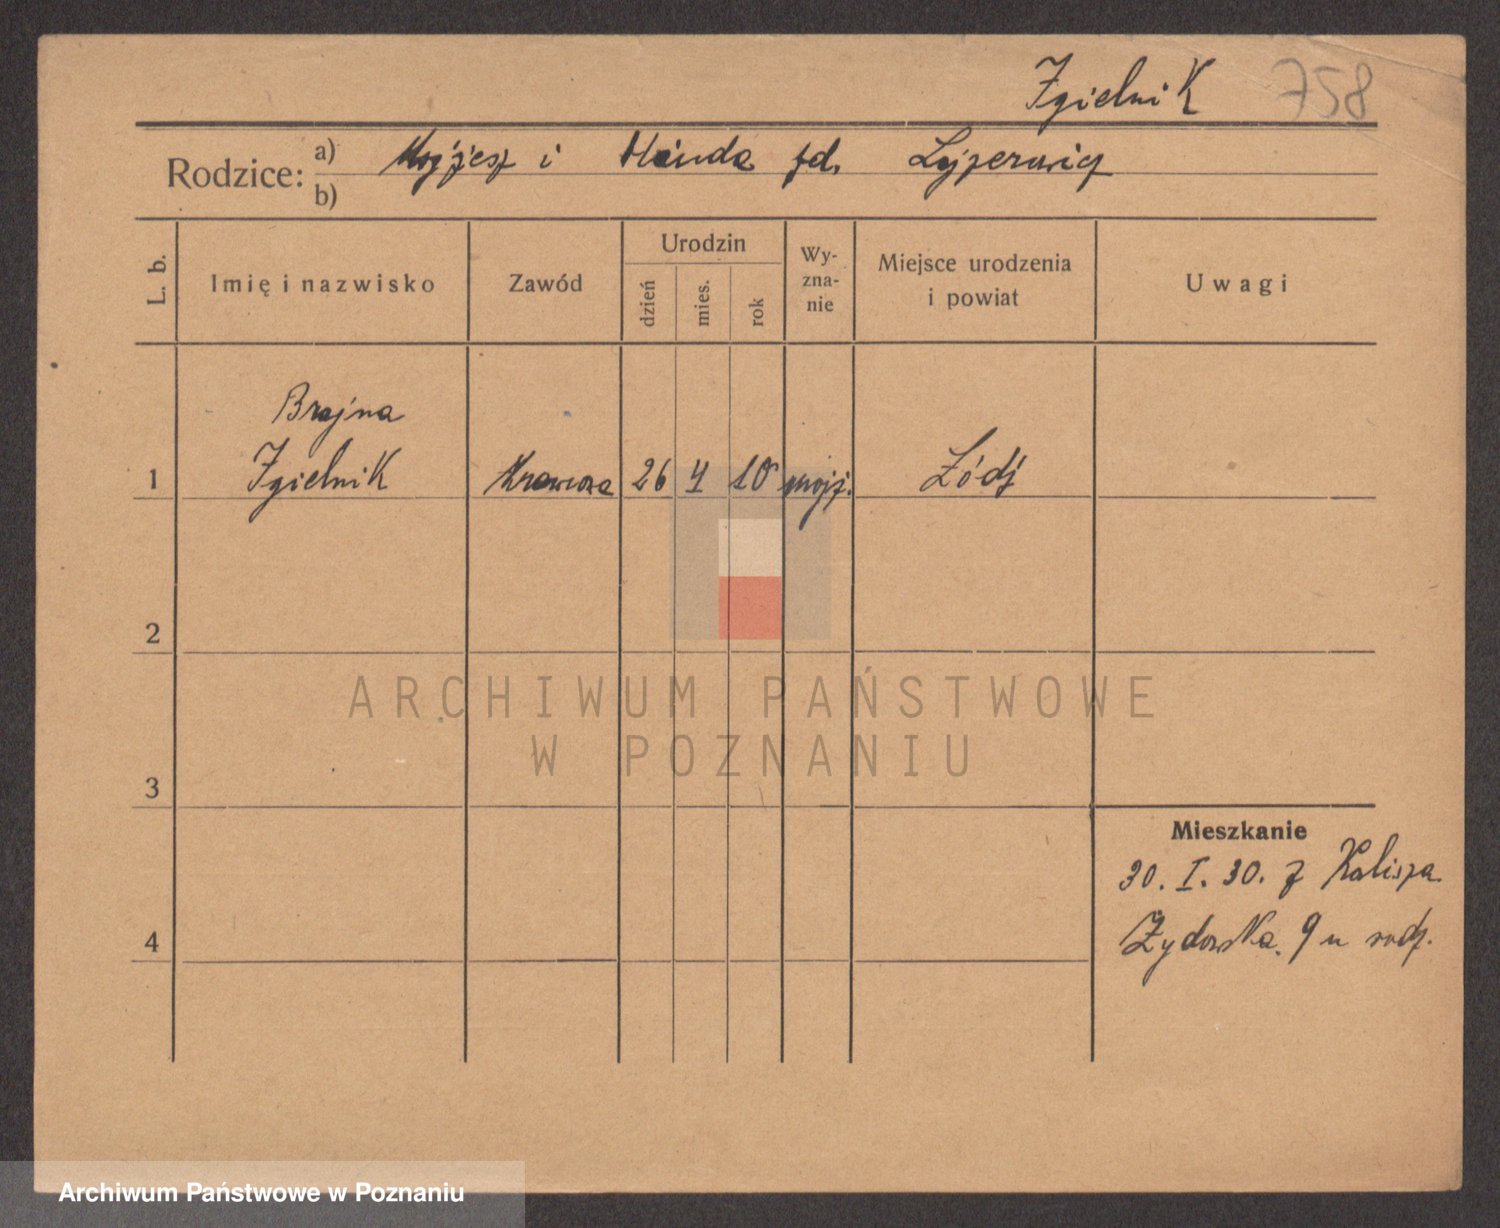 Igielnik 758
Rodzice: a) Mojżesz i Hinda zd. Lajzerowicz
b)
L. b. Imię i nazwisko Zawód Urodzin dzień mies. rok Wy-zna-nie Miejsce urodzenia i powiat Uwagi
Brajna
1 Igielnik Krawcowa 26 4 10 mojż. Łódź
2
3
4
Mieszkanie
30. I. 30. z Kalisza
Żydowska 9 u rodz.
ARCHIWUM PAŃSTWOWE
W POZNANIU
Archiwum Państwowe w Poznaniu